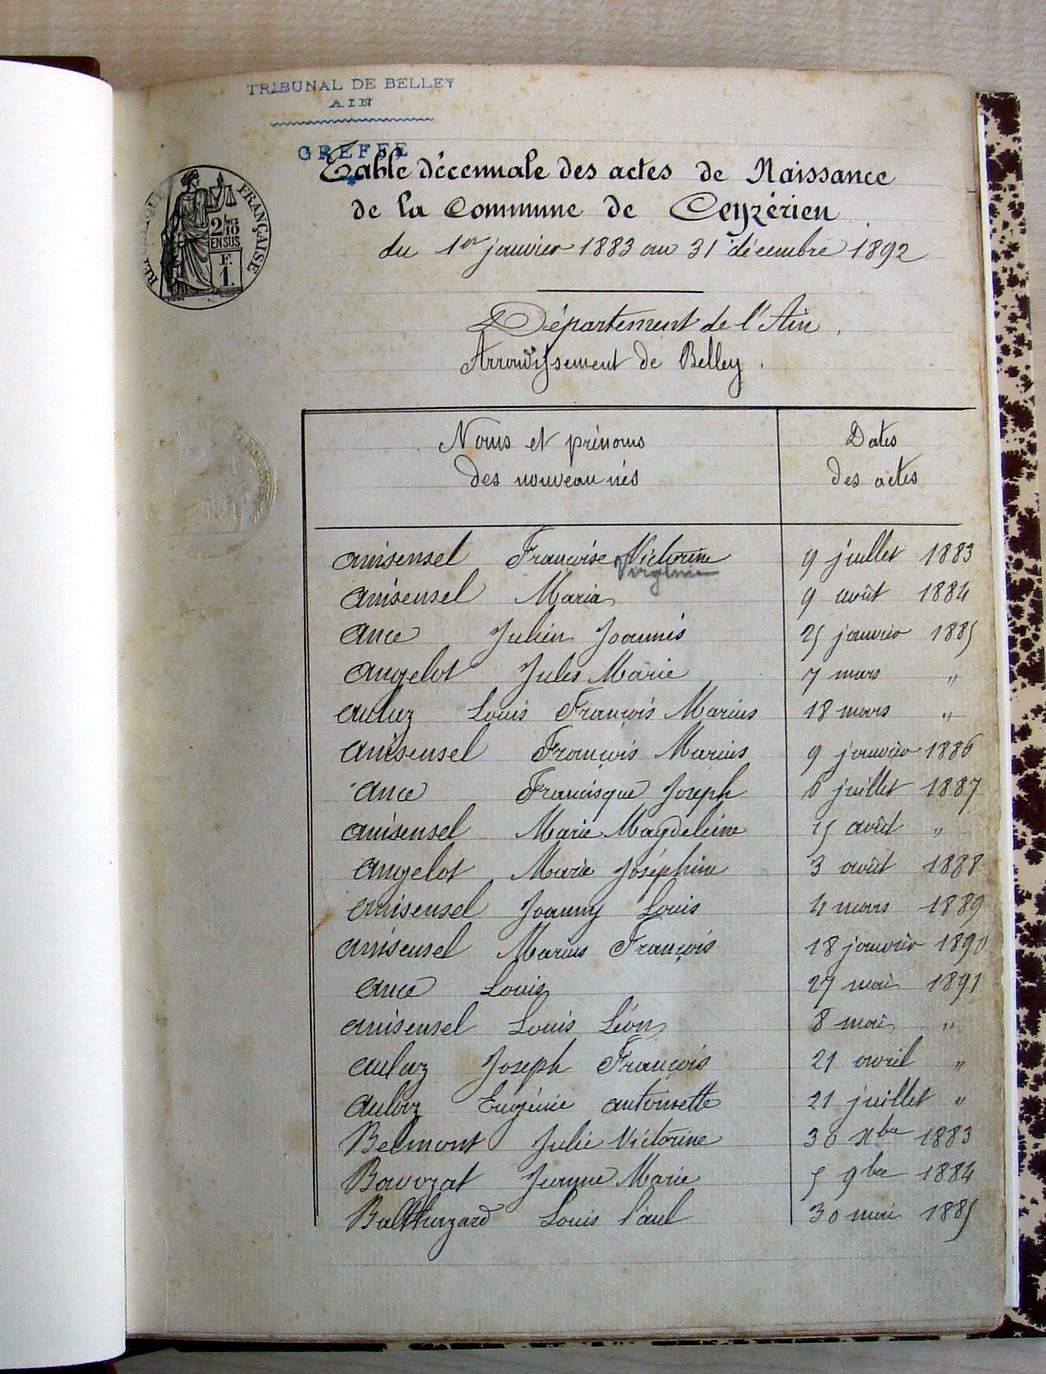 TRIBUNAL DE BELLEY
AIN
GREFFE
Table décennale des actes de Naissance
de la Commune de Ceyzérieu
du 1er janvier 1883 au 31 décembre 1892
FRANÇAISE
2/10
EN SUS
F.
1.
Département de l'Ain.
Arrondissement de Belley.
Noms et prénoms Dates
des nouveau nés des actes
Anisensel Françoise Victorine 9 juillet 1883
Virginie
Anisensel Maria 9 août 1884
Ance Julien Joannès 25 janvier 1885
Angelot Jules Marie 7 mars "
Auluz Louis François Marius 18 mars "
Anisensel François Marius 9 janvier 1886
Ance Francisque Joseph 6 juillet 1887
Anisensel Marie Magdeleine 15 août "
Angelot Marie Joséphine 3 août 1888
Anisensel Joanny Louis 4 mars 1889
Anisensel Marius François 18 janvier 1890
Ance Louis 27 mai 1891
Anisensel Louis Léon 8 mai "
Aulaz Joseph François 21 avril "
Aulaz Eugénie Antoinette 21 juillet "
Belmont Julie Victorine 30 Xbre 1883
Bavozat Jeanne Marie 5 9bre 1884
Balthazard Louis Paul 30 mai 1885